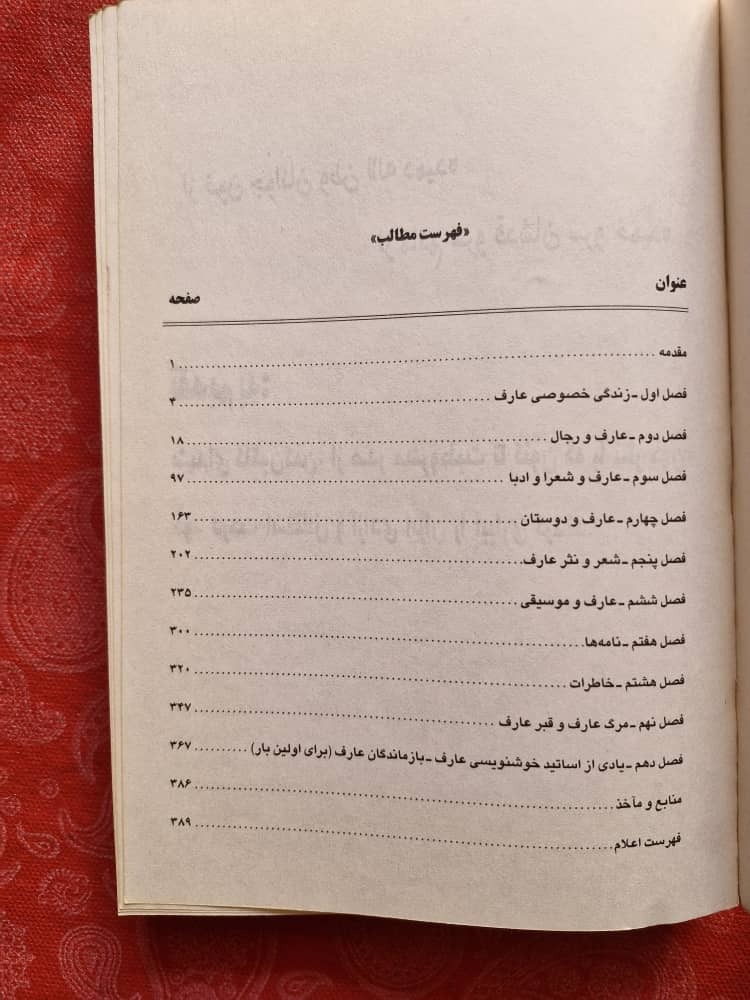 «فهرست مطالب»
عنوان صفحه
مقدمه ........................................ ۱
فصل اول ـ زندگی خصوصی عارف ........................................ ۴
فصل دوم ـ عارف و رجال ........................................ ۱۸
فصل سوم ـ عارف و شعرا و ادبا ........................................ ۹۷
فصل چهارم ـ عارف و دوستان ........................................ ۱۶۳
فصل پنجم ـ شعر و نثر عارف ........................................ ۲۰۲
فصل ششم ـ عارف و موسیقی ........................................ ۲۳۵
فصل هفتم ـ نامه‌ها ........................................ ۳۰۰
فصل هشتم ـ خاطرات ........................................ ۳۲۰
فصل نهم ـ مرگ عارف و قبر عارف ........................................ ۳۴۷
فصل دهم ـ یادی از اساتید خوشنویسی عارف ـ بازماندگان عارف (برای اولین بار) .......... ۳۶۷
منابع و مآخذ ........................................ ۳۸۶
فهرست اعلام ........................................ ۳۸۹